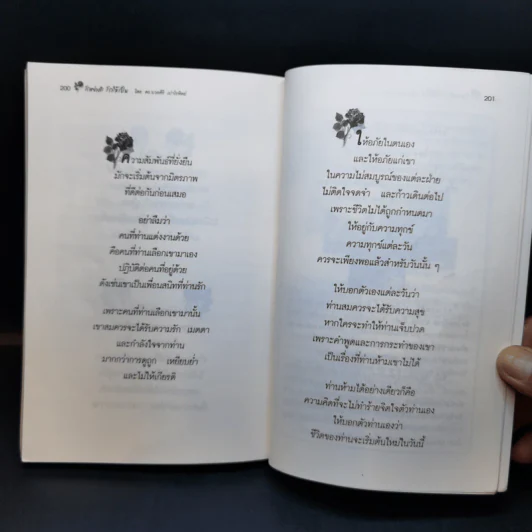 200
ความสัมพันธ์ที่ยั่งยืน
มักจะเริ่มต้นจากมิตรภาพ
ที่ดีต่อกันก่อนเสมอ
อย่าลืมว่า
คนที่ท่านแต่งงานด้วย
คือคนที่ท่านเลือกเขามาเอง
ปฏิบัติต่อคนที่อยู่ด้วย
ดังเช่นเขาเป็นเพื่อนสนิทที่ท่านรัก
เพราะคนที่ท่านเลือกเขามานั้น
เขาสมควรจะได้รับความรัก เมตตา
และกำลังใจจากท่าน
มากกว่าการดูถูก เหยียบย่ำ
และไม่ให้เกียรติ
201
ให้อภัยในตนเอง
และให้อภัยแก่เขา
ในความไม่สมบูรณ์ของแต่ละฝ่าย
ไม่ติดใจจดจำ และก้าวเดินต่อไป
เพราะชีวิตไม่ได้ถูกกำหนดมา
ให้อยู่กับความทุกข์
ความทุกข์แต่ละวัน
ควรจะเพียงพอแล้วสำหรับวันนั้น ๆ
ให้บอกตัวเองแต่ละวันว่า
ท่านสมควรจะได้รับความสุข
หากใครจะทำให้ท่านเจ็บปวด
เพราะคำพูดและการกระทำของเขา
เป็นเรื่องที่ท่านห้ามเขาไม่ได้
ท่านห้ามได้อย่างเดียวก็คือ
ความคิดที่จะไม่ทำร้ายจิตใจตัวท่านเอง
ให้บอกตัวท่านเองว่า
ชีวิตของท่านจะเริ่มต้นใหม่ในวันนี้